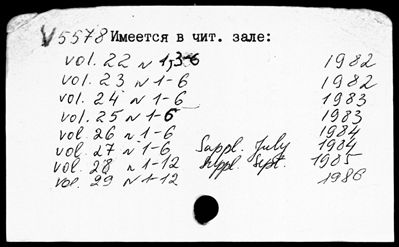 V5578 Имеется в чит. зале:
vol. 22 N 1,3-6 1982
vol. 23 N 1-6 1982
vol. 24 N 1-6 1983
vol. 25 N 1-6 1983
vol. 26 N 1-6 1984
vol. 27 N 1-6 Suppl. July 1984
vol. 28 N 1-12 Suppl. Sept. 1985
vol. 29 N 1-12 1986